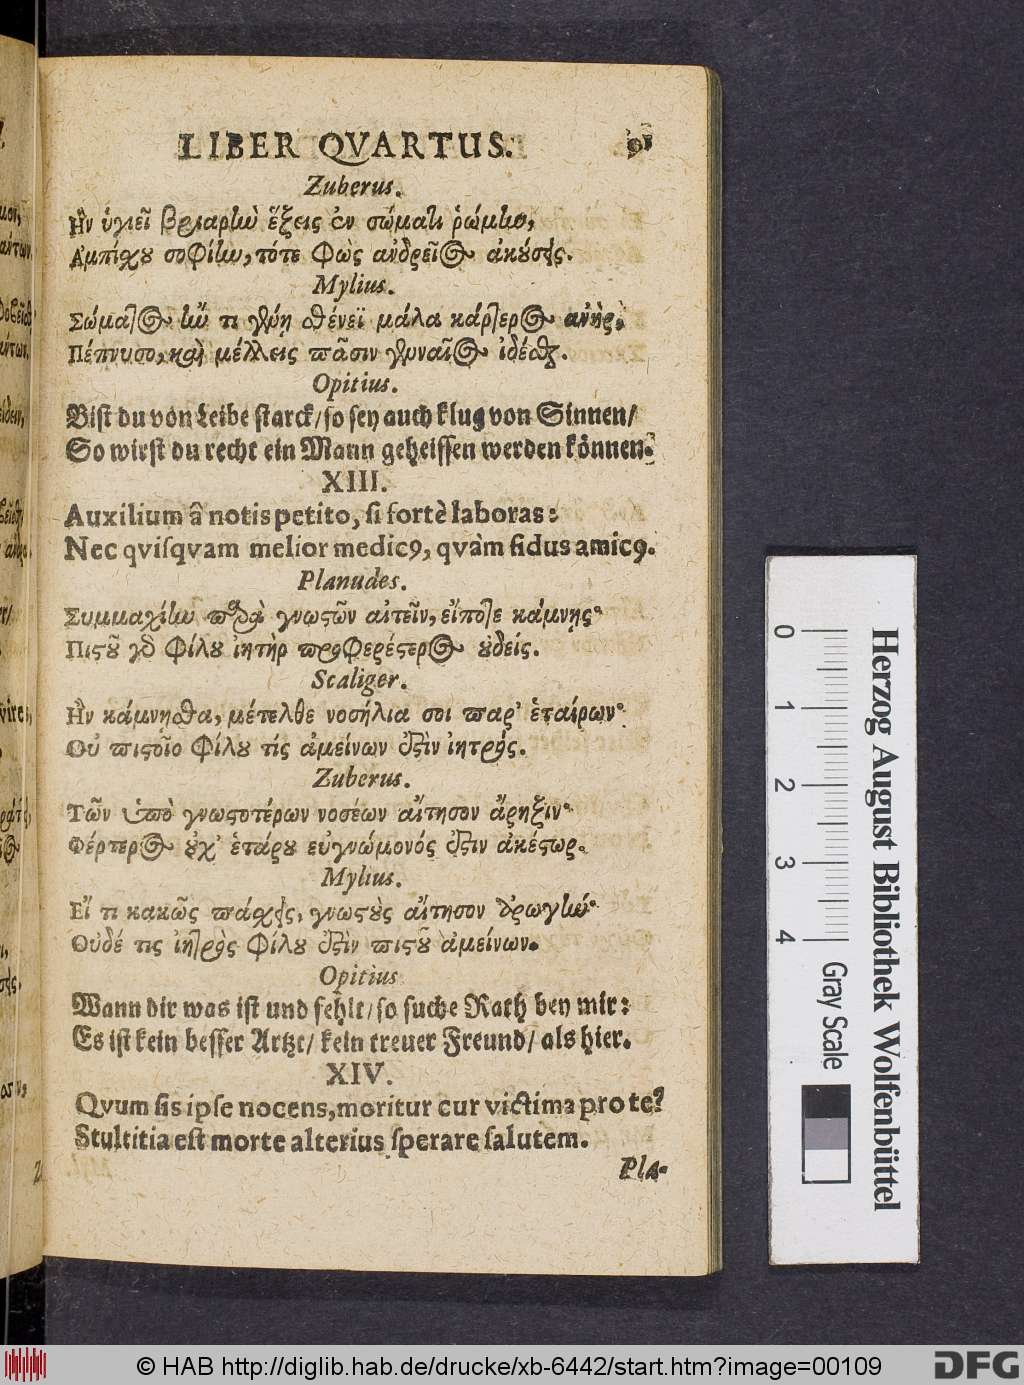 LIBER QVARTUS. 91
Zuberus.
Ἢν ὑγιεῖ βριαρὴν ἕξεις ἐν σώματι ῥώμην,
Ἀμπίσχου σοφίην, τότε φὼς ἀνδρεῖος ἀκούσεις.
Mylius.
Σώματος ἤν τι γένῃ σθένεϊ μάλα κάρτερος ἀνὴρ,
Πέπνυσο, καὶ μέλλεις πᾶσιν γενναῖος ἰδέσθαι.
Opitius.
Bist du von Leibe starck/ so sey auch klug von Sinnen/
So wirst du recht ein Mann geheissen werden können.
XIII.
Auxilium â notis petito, si fortè laboras:
Nec qvisqvam melior medicꝰ, qvàm fidus amicꝰ.
Planudes.
Συμμαχίην παρὰ γνωστῶν αἰτεῖν, εἴποτε κάμνῃς·
Πιστοῦ γὰρ φίλου ἰητὴρ προφερέστερος οὐδείς.
Scaliger.
Ἢν κάμνησθα, μέτελθε νοσήλια σοι παρ' ἑταίρων·
Οὐ πιστοῖο φίλου τίς ἀμείνων ἐστὶν ἰητρός.
Zuberus.
Τῶν ὑπὸ γνωστοτέρων νοσέων αἴτησον ἄρηξιν·
Φέρτερος οὐχ' ἑτάρου εὐγνώμονός ἐστιν ἀκέστωρ.
Mylius.
Εἴ τι κακῶς πάσχεις, γνωστοὺς αἴτησον ἀρωγήν·
Οὐδέ τις ἰητρὸς φίλου ἐστὶν πιστοῦ ἀμείνων.
Opitius
Wann dir was ist und fehlt/ so suche Rath bey mir:
Es ist kein besser Artzt/ kein treuer Freund/ als hier.
XIV.
Qvum sis ipse nocens, moritur cur victima pro te?
Stultitia est morte alterius sperare salutem.
Pla-
0 1 2 3 4 Gray Scale
Herzog August Bibliothek Wolfenbüttel
© HAB http://diglib.hab.de/drucke/xb-6442/start.htm?image=00109
DFG